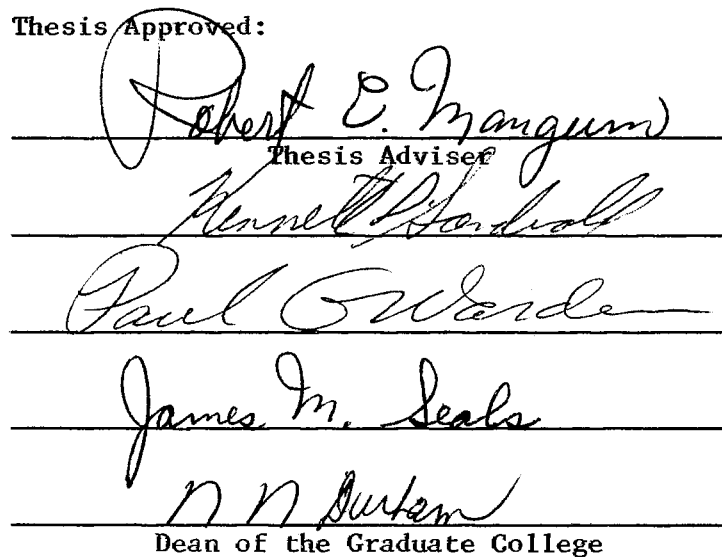 Thesis Approved:
Robert E. Mangum
Thesis Adviser
Kenneth
Paul G Warden
James M. Seals
N N Durham
Dean of the Graduate College